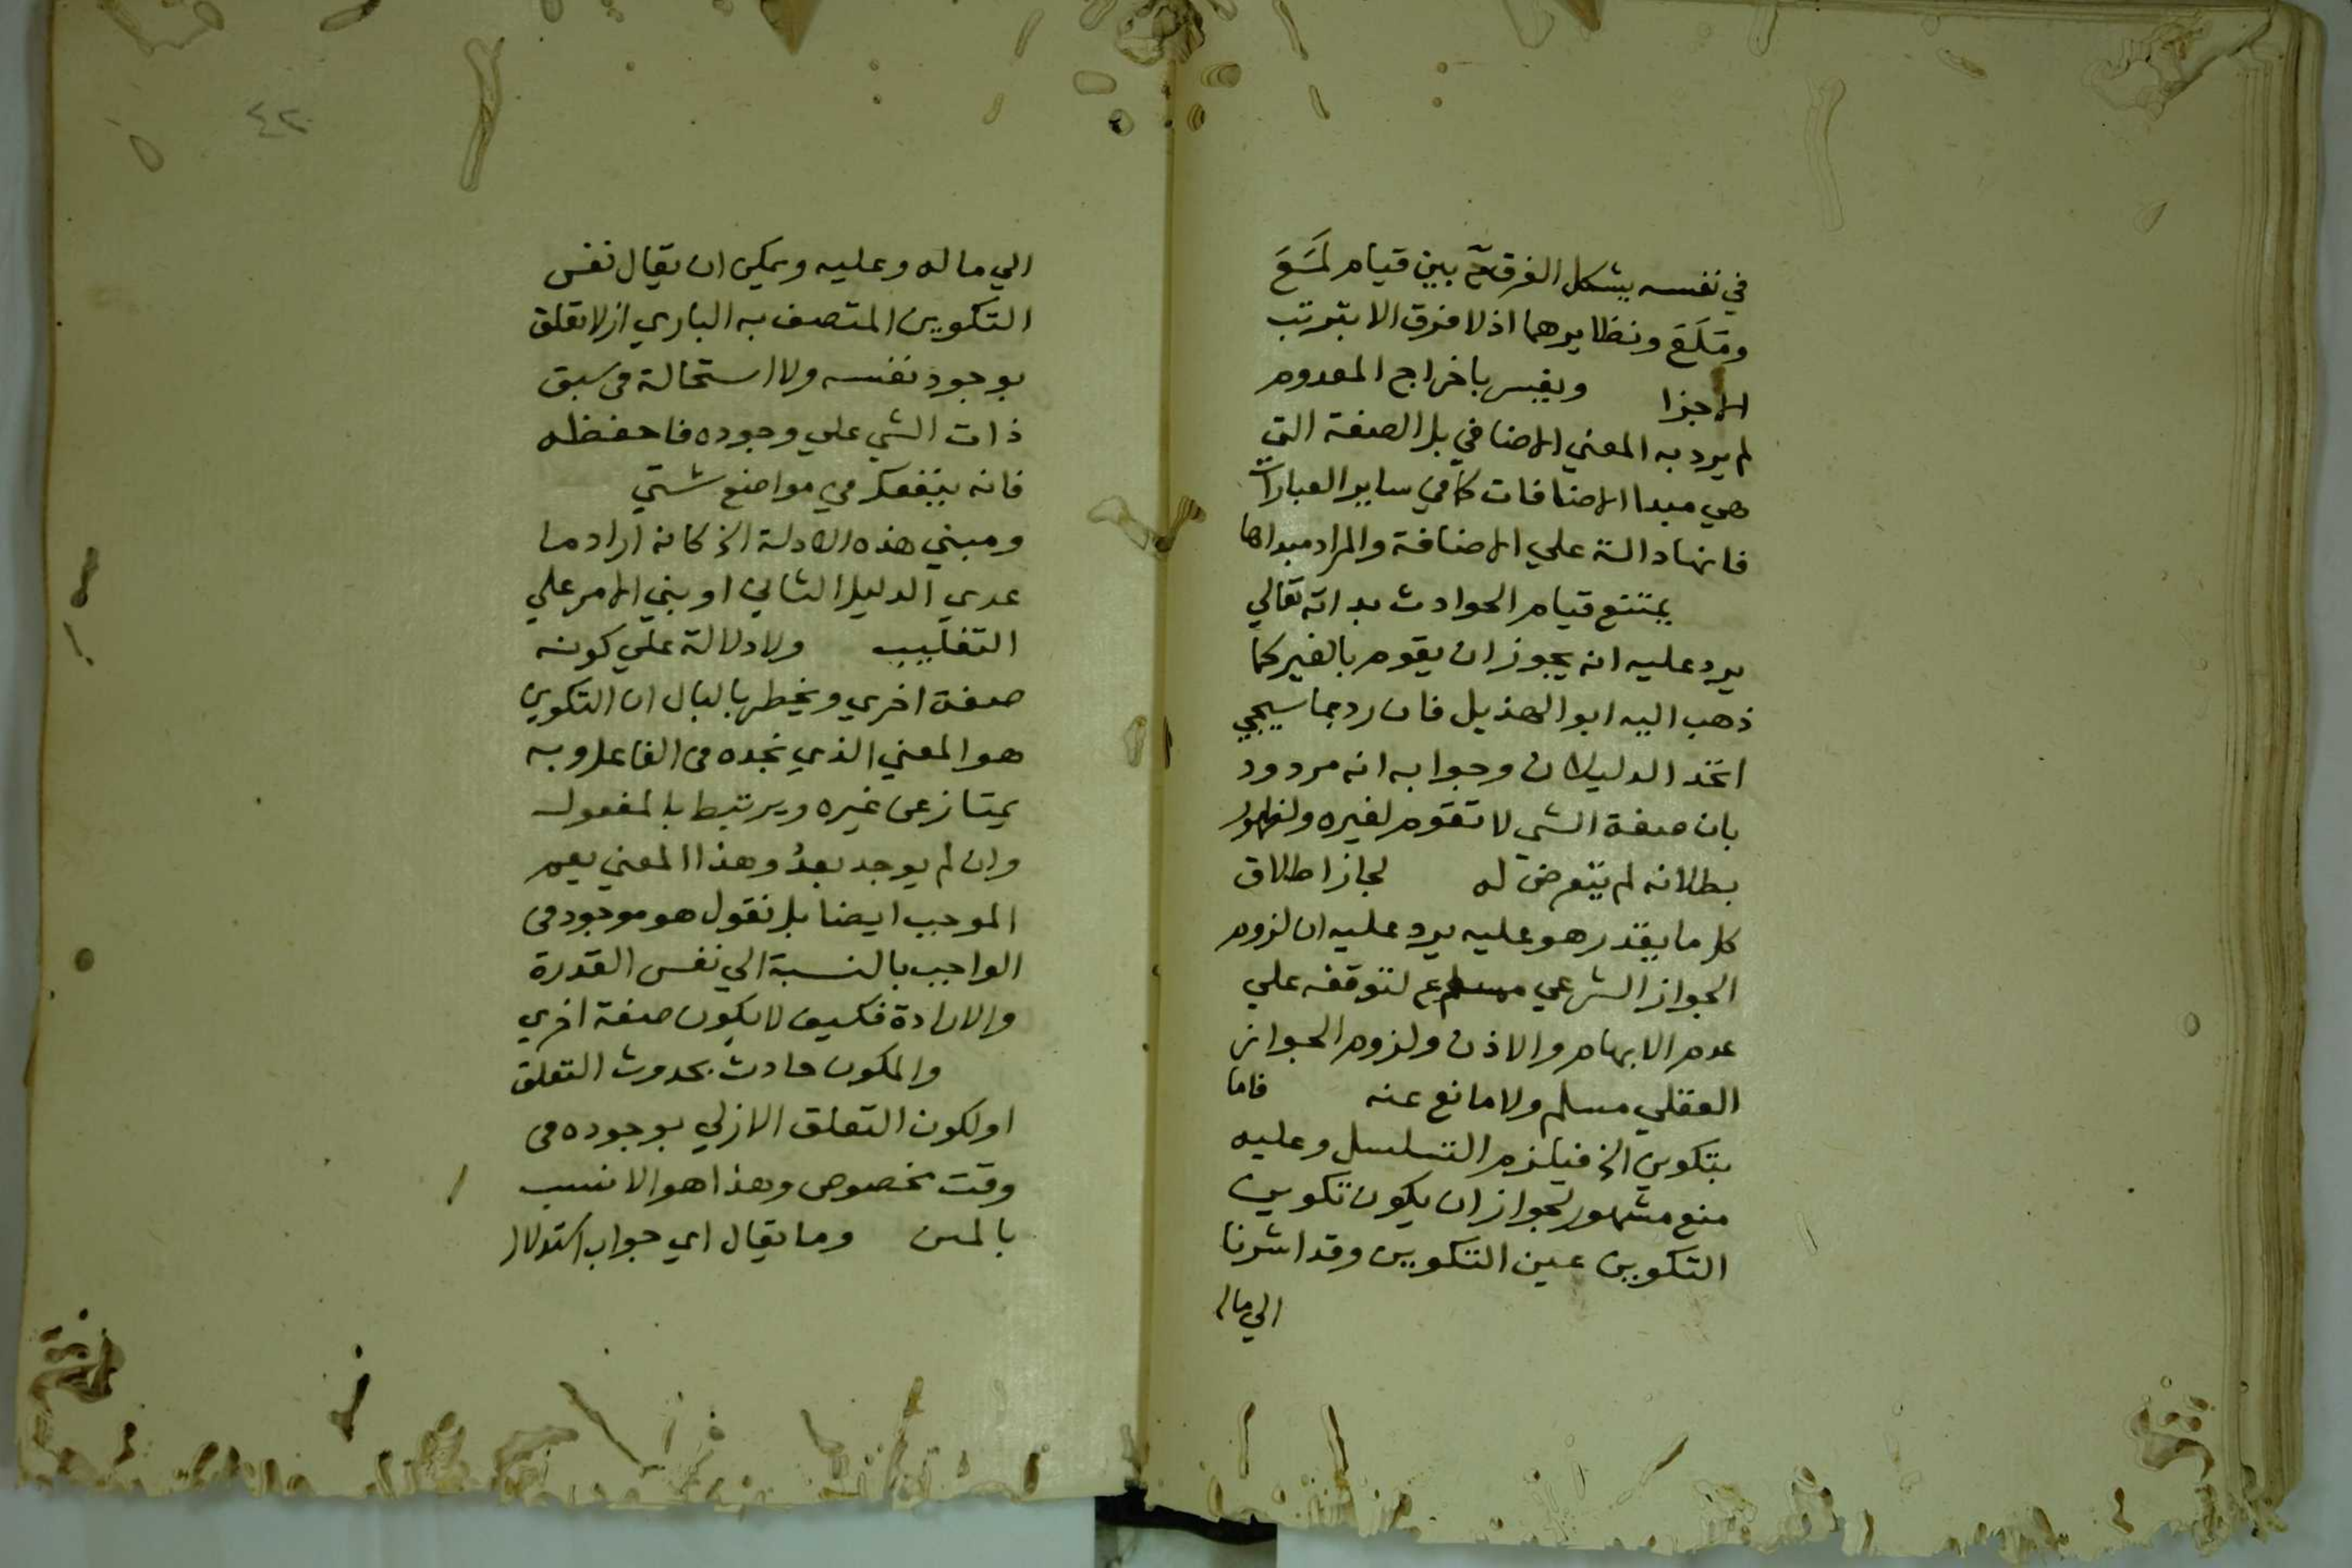 في نفسه يشكل الفرق ح بين قيام لَمَعَ
ومَلَعَ ونظايرهما اذ لا فرق الا بترتب
الاجزا ويفسر باخراج المعدوم
لم يرد به المعني الاضافي بل الصفة التي
هي مبدا الاضافات كما في ساير العبارات
فانها دالة علي الاضافة والمراد مبداها
يمتنع قيام الحوادث بذاته تعالي
يرد عليه انه يجوز ان يقوم بالغير كما
ذهب اليه ابو الهذيل فان رد بما سيجي
اتحد الدليلان وجوابه انه مردود
بان صفة الشي لا تقوم لغيره ولظهور
بطلانه لم يتعرض له لجاز اطلاق
كل ما يقدر هو عليه يرد عليه ان لزوم
الجواز الشرعي مم لتوقفه علي
عدم الابهام والاذن ولزوم الجواز
العقلي مسلم ولا مانع عنه فاما
بتكوين الخ فيلزم التسلسل وعليه
منع مشهور لجواز ان يكون تكوين
التكوين عين التكوين وقد اشرنا
الي ما ل
٤٢
الي ما له وعليه ويمكن ان يقال نفس
التكوين المتصف به الباري ازلا تعلق
بوجود نفسه ولا استحالة في سبق
ذات الشي علي وجوده فاحفظه
فانه ينفعك في مواضع شتي
ومبني هذه الادلة الخ كانه اراد ما
عدي الدليل الثاني او بني الامر علي
التغليب ولا دلالة علي كونه
صفة اخري ويخطر بالبال ان التكوين
هو المعني الذي نجده في الفاعل وبه
يمتاز عن غيره ويرتبط بالمفعول
وان لم يوجد بعدُ وهذا المعني يعم
الموجب ايضا بل نقول هو موجود في
الواجب بالنسبة الي نفس القدرة
والارادة فكيف لا يكون صفة اخري
والمكون حادث بحدوث التعلق
او لكون التعلق الازلي بوجوده في
وقت مخصوص وهذا هو الانسب
بالمتن وما يقال اي جواب استدلال